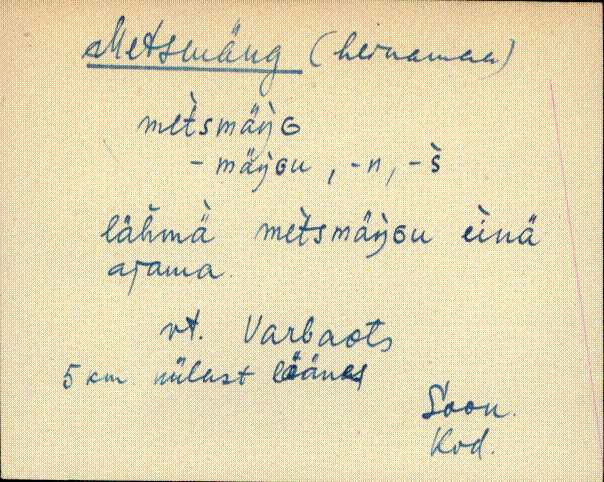 Metsmäng (heinamaa)
mètsmäŋ̀G
- mäŋ̀Gu, -n, -s̀
lähmä̀ mètsmäŋ̀Gu èinä
ajama.
vt. Varbaots
5 km. külast läänes
Soon.
Kod.